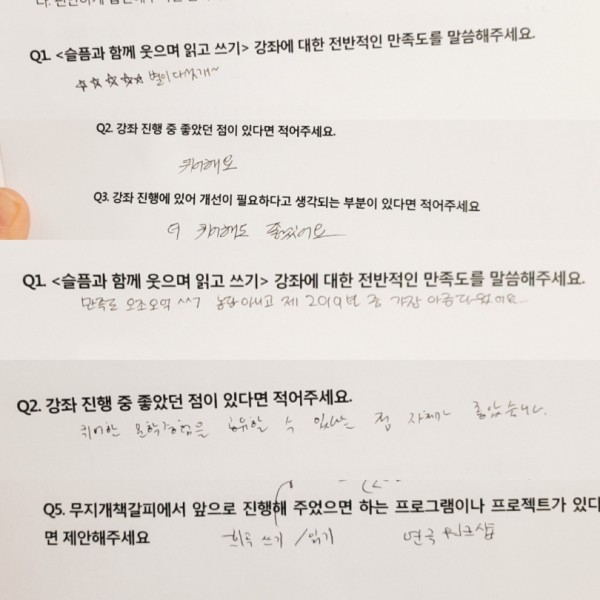 Q1. <슬픔과 함께 웃으며 읽고 쓰기> 강좌에 대한 전반적인 만족도를 말씀해주세요.
☆☆☆☆☆ 별이 다섯개~
Q2. 강좌 진행 중 좋았던 점이 있다면 적어주세요.
퀴어해요
Q3. 강좌 진행에 있어 개선이 필요하다고 생각되는 부분이 있다면 적어주세요
더 퀴어해도 좋겠어요
Q1. <슬픔과 함께 웃으며 읽고 쓰기> 강좌에 대한 전반적인 만족도를 말씀해주세요.
만족도 오조오억 ^^7 농담 아니고 제 2019년 중 가장 아름다웠어요
Q2. 강좌 진행 중 좋았던 점이 있다면 적어주세요.
퀴어한 문학경험을 공유할 수 있다는 점 자체가 좋았습니다.
Q5. 무지개책갈피에서 앞으로 진행해 주었으면 하는 프로그램이나 프로젝트가 있다
면 제안해주세요 희곡 쓰기/읽기 연극 워크샵